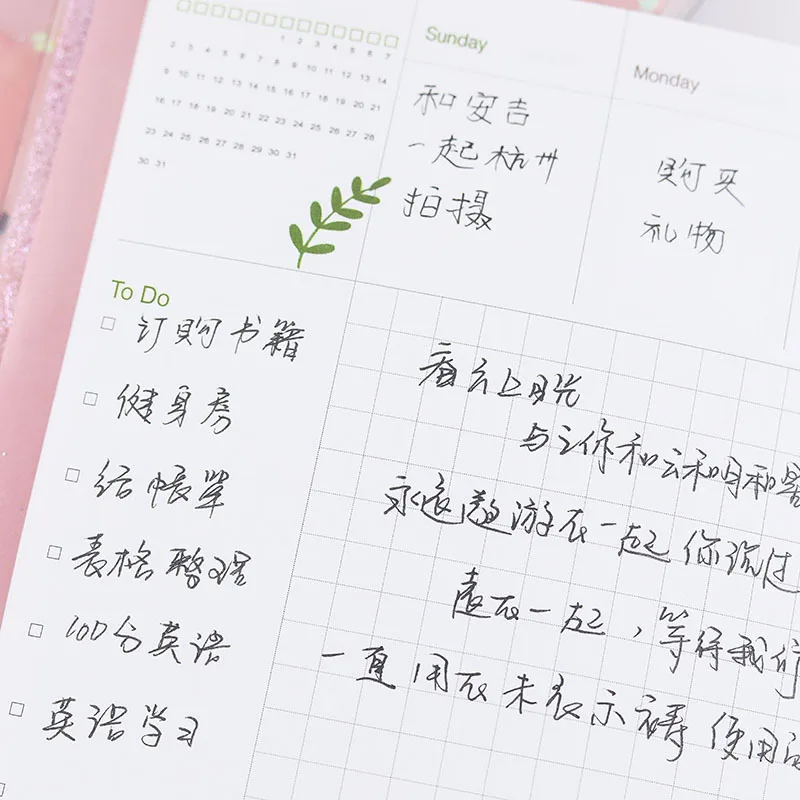 1 2 3 4 5 6 7
2 3 4 5 6 7 8 9 10 11 12 13 14
9 10 11 12 13 14 15 16 17 18 19 20 21
16 17 18 19 20 21 22 23 24 25 26 27 28
23 24 25 26 27 28 29 30 31
30 31
Sunday
和安吉
一起杭州
拍摄
Monday
购买
礼物
To Do
订购书籍
健身房
结帐单
表格整理
100分英语
英语学习
云上
你和云和月和
永远遨游在一起 你说过
在一起，等得我们
一直用在未表示 使用